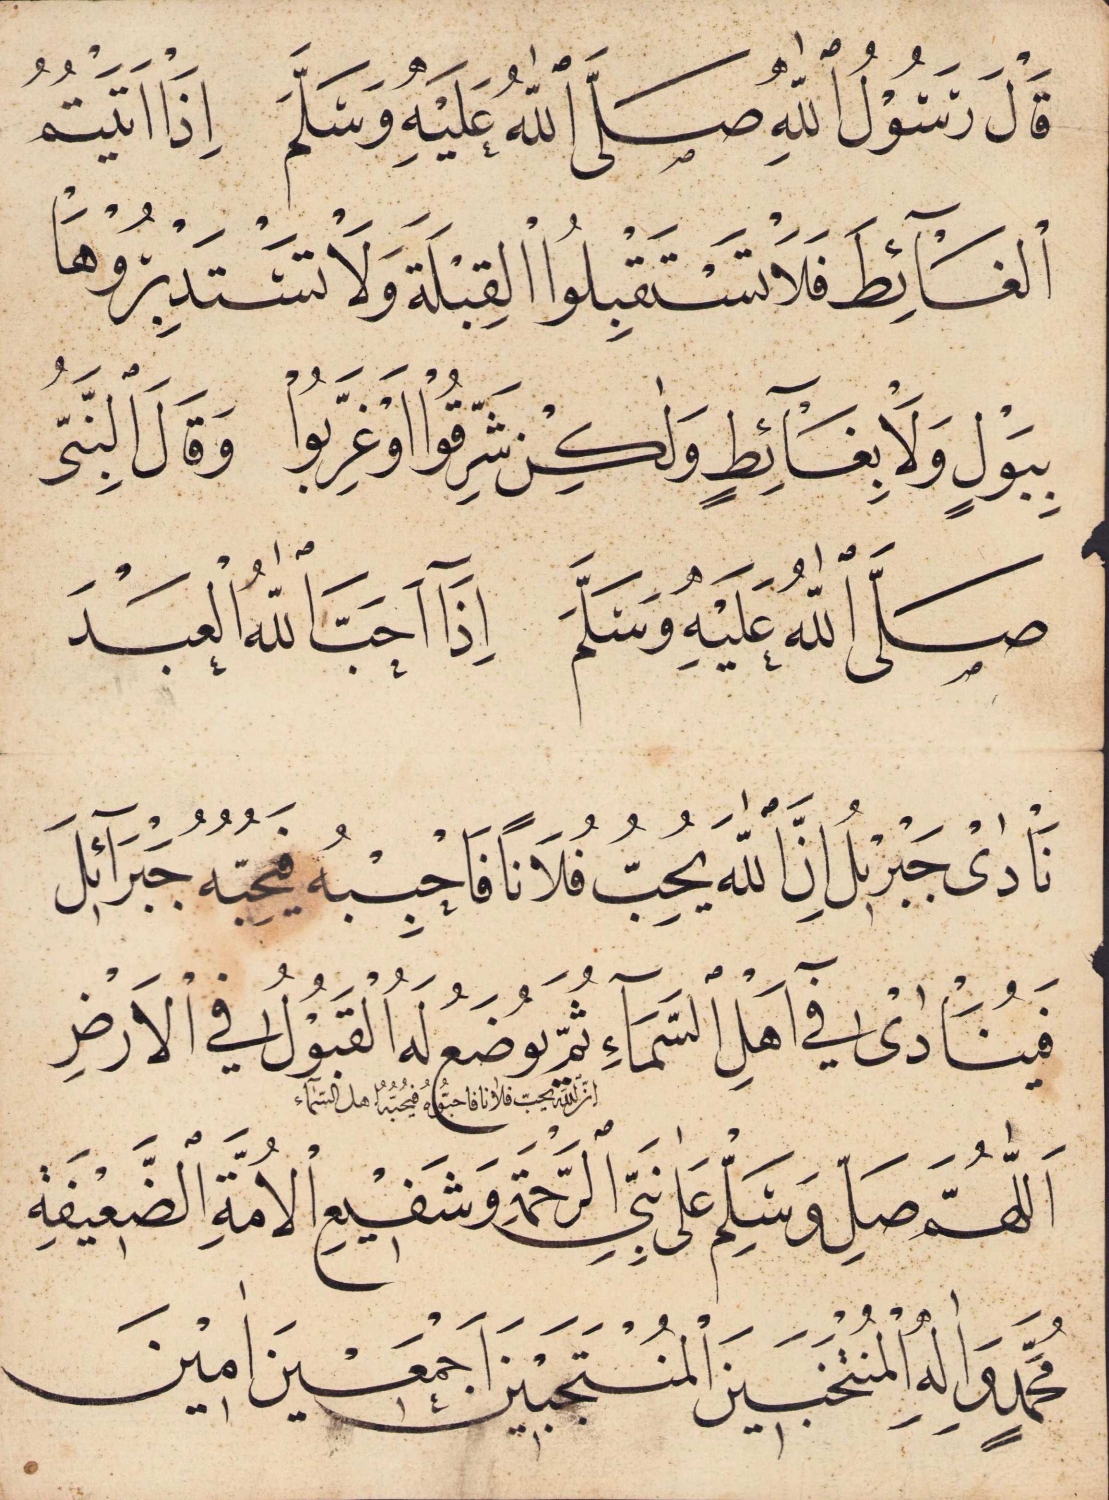 قَالَ رَسُوْلُ ٱللّٰهِ صَلَّى ٱللّٰهُ عَلَيْهِ وَسَلَّمَ اِذَا اَتَيْتُمُ
الْغَآئِطَ فَلَا تَسْتَقْبِلُوا الْقِبْلَةَ وَلَا تَسْتَدْبِرُوْهَا
بِبَوْلٍ وَلَا بِغَآئِطٍ وَلٰكِنْ شَرِّقُوْا اَوْ غَرِّبُوْا وَقَالَ ٱلنَّبِىُّ
صَلَّى ٱللّٰهُ عَلَيْهِ وَسَلَّمَ اِذَآ اَحَبَّ ٱللّٰهُ الْعَبْدَ
نَادٰى جَبْرَئِلَ اِنَّ ٱللّٰهَ يُحِبُّ فُلَانًا فَاَحْبِبْهُ فَيُحِبُّهُ جَبْرَآئِلُ
فَيُنَادٰى فِىٓ اَهْلِ ٱلسَّمَآءِ ثُمَّ يُوضَعُ لَهُ الْقَبُوْلُ فِى الْاَرْضِ
اِنَّ ٱللّٰهَ يحبّ فلانا فاحبّوُهُ فَيُحِبُّهُ اهل السّمآء
اَللّٰهُمَّ صَلِّ وَسَلِّمْ عَلٰى نَبِىِّ ٱلرَّحْمَةِ وَشَفِيْعِ الْاُمَّةِ ٱلضَّعِيْفَةِ
مُحَمَّدٍ وَاٰلِهِ الْمُنْتَخَبِيْنَ الْمُسْتَجَبِيْنَ اَجْمَعِيْنَ اٰمِيْنَ